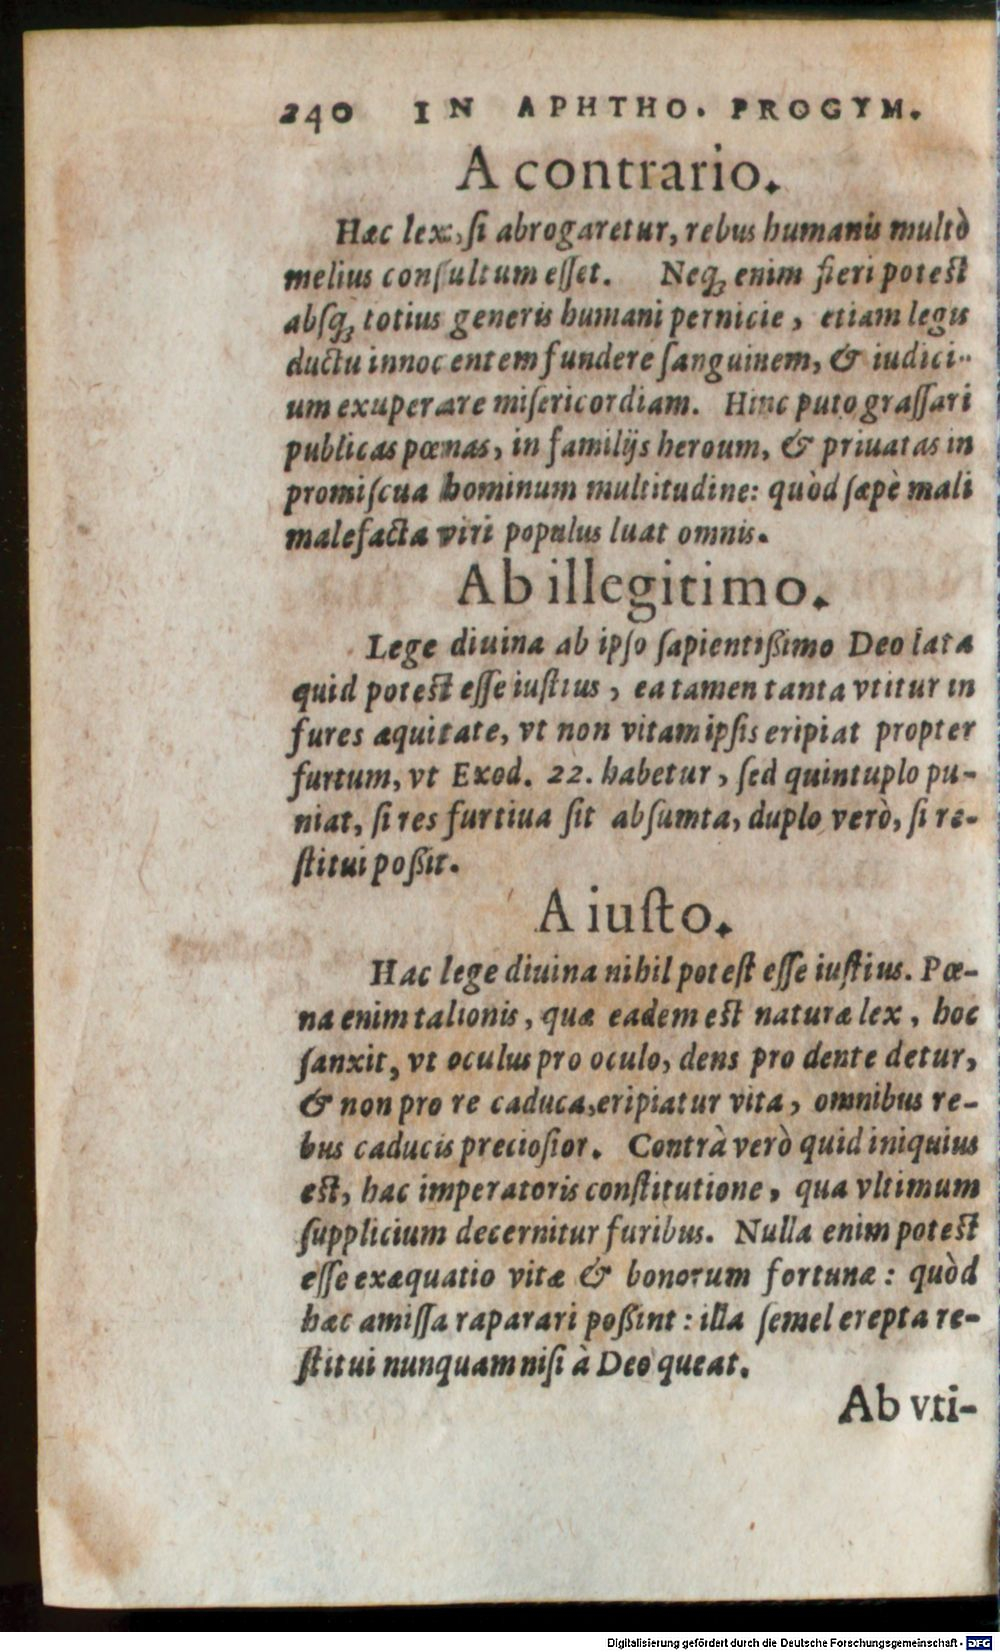 240 IN APHTHO. PROGYM.
A contrario.
Hæc lex, ſi abrogaretur, rebus humanis multò
melius conſultum eſſet. Neq; enim fieri poteſt
abſq; totius generis humani pernicie, etiam legis
ductu innocentem fundere ſanguinem, & iudici-
um exuperare miſericordiam. Hinc puto graſſari
publicas pœnas, in familijs heroum, & priuatas in
promiſcua hominum multitudine: quòd ſæpè mali
malefacta viri populus luat omnis.
Ab illegitimo.
Lege diuina ab ipſo ſapientißimo Deo lata
quid poteſt eſſe iuſtius, ea tamen tanta vtitur in
fures æquitate, vt non vitam ipſis eripiat propter
furtum, vt Exod. 22. habetur, ſed quintuplo pu-
niat, ſi res furtiua ſit abſumta, duplo verò, ſi re-
ſtitui poßit.
A iuſto.
Hac lege diuina nihil poteſt eſſe iuſtius. Pœ-
na enim talionis, quæ eadem eſt naturæ lex, hoc
ſanxit, vt oculus pro oculo, dens pro dente detur,
& non pro re caduca, eripiatur vita, omnibus re-
bus caducis precioſior. Contrà verò quid iniquius
eſt, hac imperatoris conſtitutione, qua vltimum
ſupplicium decernitur furibus. Nulla enim poteſt
eſſe exæquatio vitæ & bonorum fortunæ: quòd
hæc amiſſa raparari poßint: illa ſemel erepta re-
ſtitui nunquam niſi à Deo queat.
Ab vti-
Digitalisierung gefördert durch die Deutsche Forschungsgemeinschaft - DFG